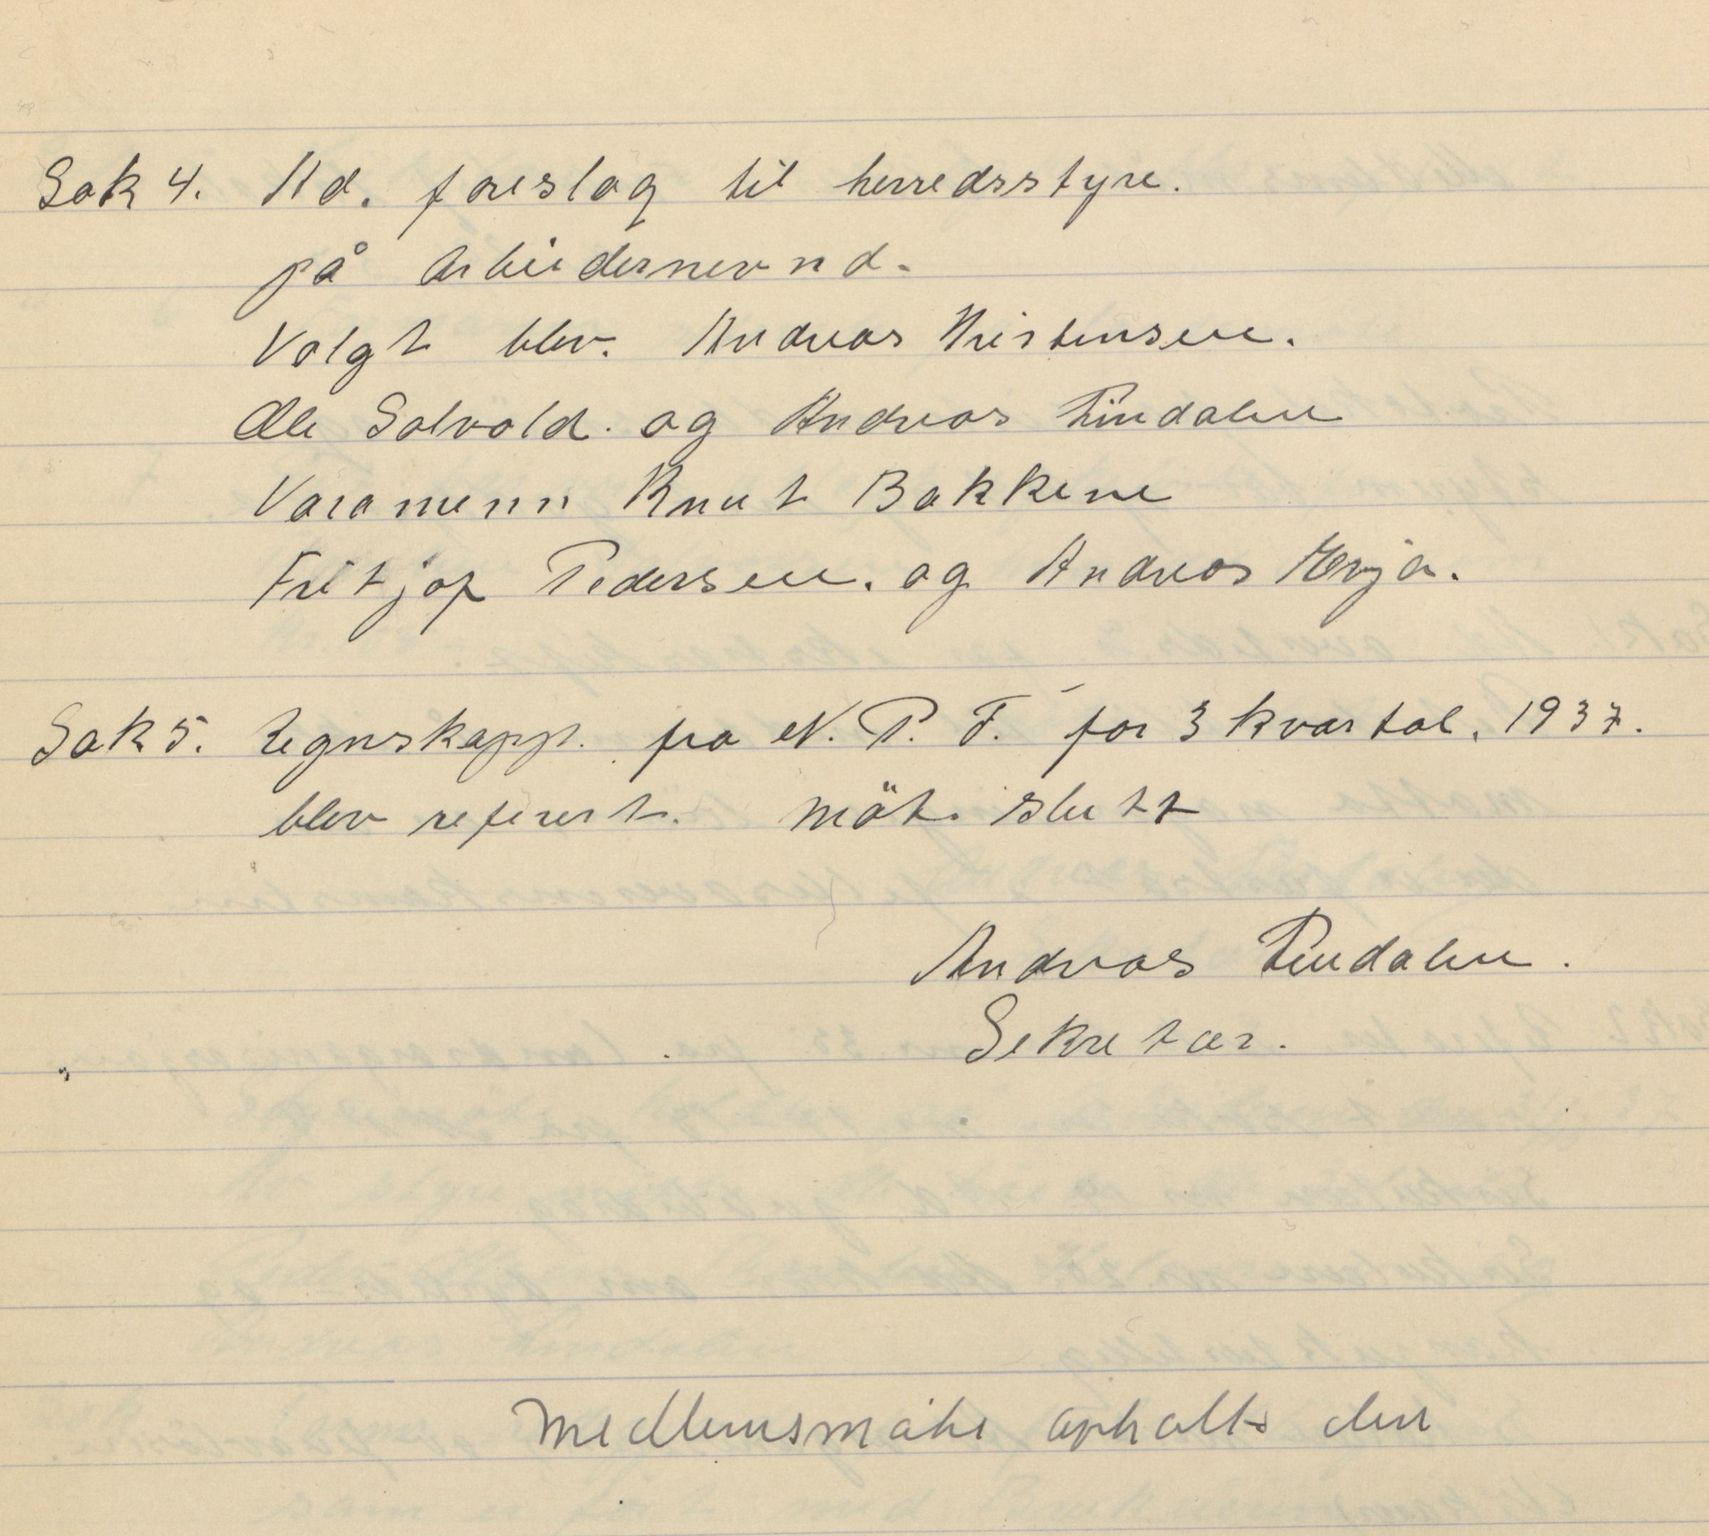 Sak 4. Ad. foreslag til herredsstyre.
på Arbeidernevnd.
Valgt blev. Andreas Kristensen.
Ole Solvold. og Andreas Lindalen
Varamenn Knut Bakkene
Fritjof Pedersen. og Andreas
Sak 5. Regnskapp. fra N. P. F. for 3 kvartal. 1937.
blev referert. Möt. slutt
Andreas Lindalen.
Sekretær.
Medlemsmøte opholts den